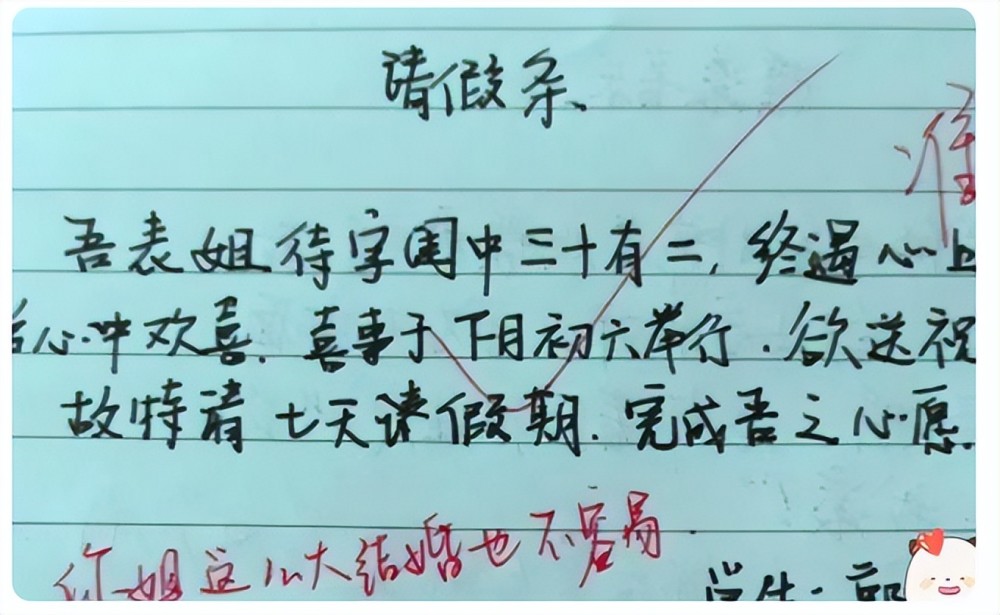 请假条
准
吾表姐待字闺中三十有二,终遇心上
心中欢喜.喜事于下月初六举行.欲送祝
故特请七天请假期.完成吾之心愿.
你姐这么大结婚也不容易
学生:郭